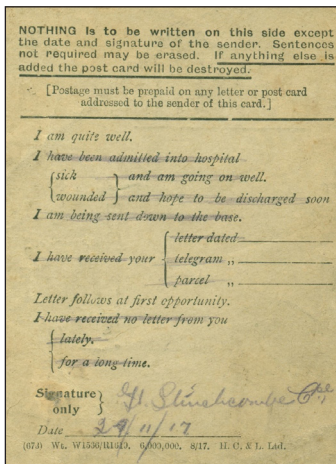 NOTHING is to be written on this side except
the date and signature of the sender. Sentences
not required may be erased. If anything else is
added the post card will be destroyed.
[Postage must be prepaid on any letter or post card
addressed to the sender of this card.]
I am quite well.
I have been admitted into hospital
sick and am going on well.
wounded and hope to be discharged soon
I am being sent down to the base.
letter dated
I have received your telegram „
parcel „
Letter follows at first opportunity.
I have received no letter from you
lately.
for a long time.
Signature only Stinchcombe Cpl
Date 29/11/17
(67J) Wt. W1566/R1619. 6,000,000. 8/17. H. C. & L. Ltd.